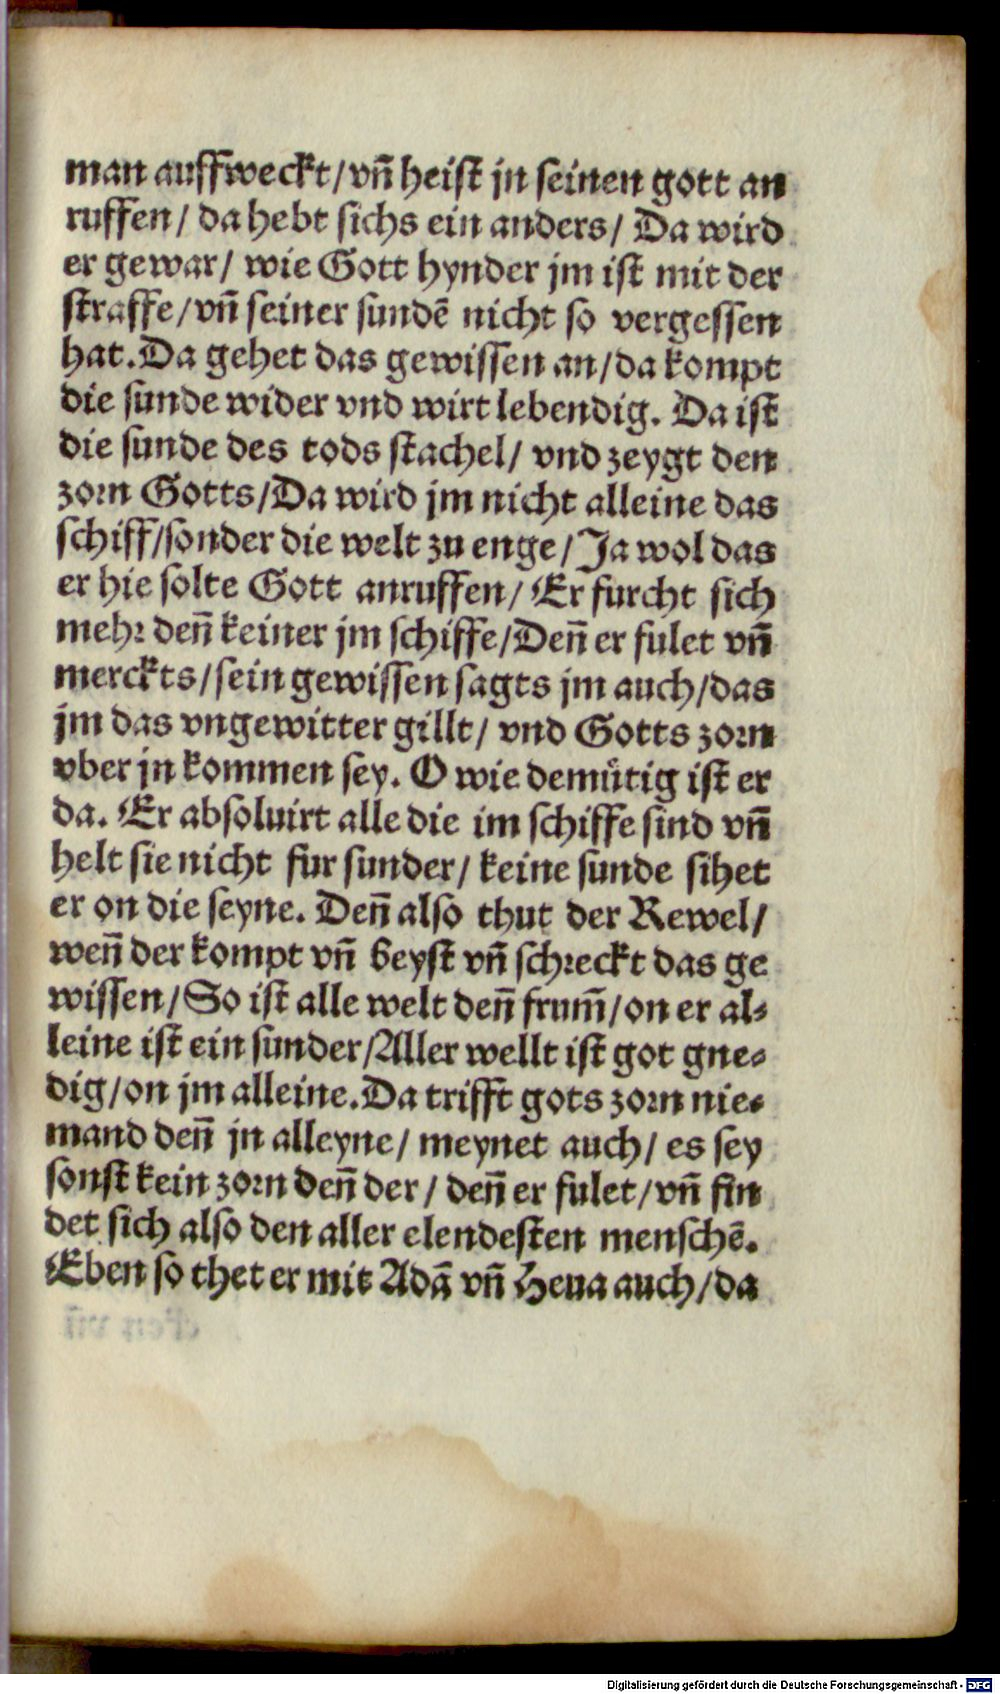 man auffweckt/ vñ heist jn seinen gott an
ruffen/ da hebt sichs ein anders/ Da wird
er gewar/ wie Gott hynder jm ist mit der
straffe/ vñ seiner sundē nicht so vergessen
hat. Da gehet das gewissen an/ da kompt
die sunde wider vnd wirt lebendig. Da ist
die sunde des tods stachel/ vnd zeygt den
zorn Gotts/ Da wird jm nicht alleine das
schiff/ sonder die welt zu enge/ Ja wol das
er hie solte Gott anruffen/ Er furcht sich
mehr deñ keiner jm schiffe/ Deñ er fulet vñ
merckts/ sein gewissen sagts jm auch/ das
jm das vngewitter gillt/ vnd Gotts zorn
vber jn kommen sey. O wie demuͤtig ist er
da. Er absoluirt alle die im schiffe sind vñ
helt sie nicht fur sunder/ keine sunde sihet
er on die seyne. Deñ also thut der Rewel/
weñ der kompt vñ beyst vñ schreckt das ge
wissen/ So ist alle welt deñ frum̄/ on er al⸗
leine ist ein sunder/ Aller wellt ist got gne⸗
dig/ on jm alleine. Da trifft gots zorn nie⸗
mand deñ jn alleyne/ meynet auch/ es sey
sonst kein zorn deñ der/ deñ er fulet/ vñ fin
det sich also den aller elendesten menschē.
Eben so thet er mit Adā vñ Heua auch/ da
Digitalisierung gefördert durch die Deutsche Forschungsgemeinschaft - DFG